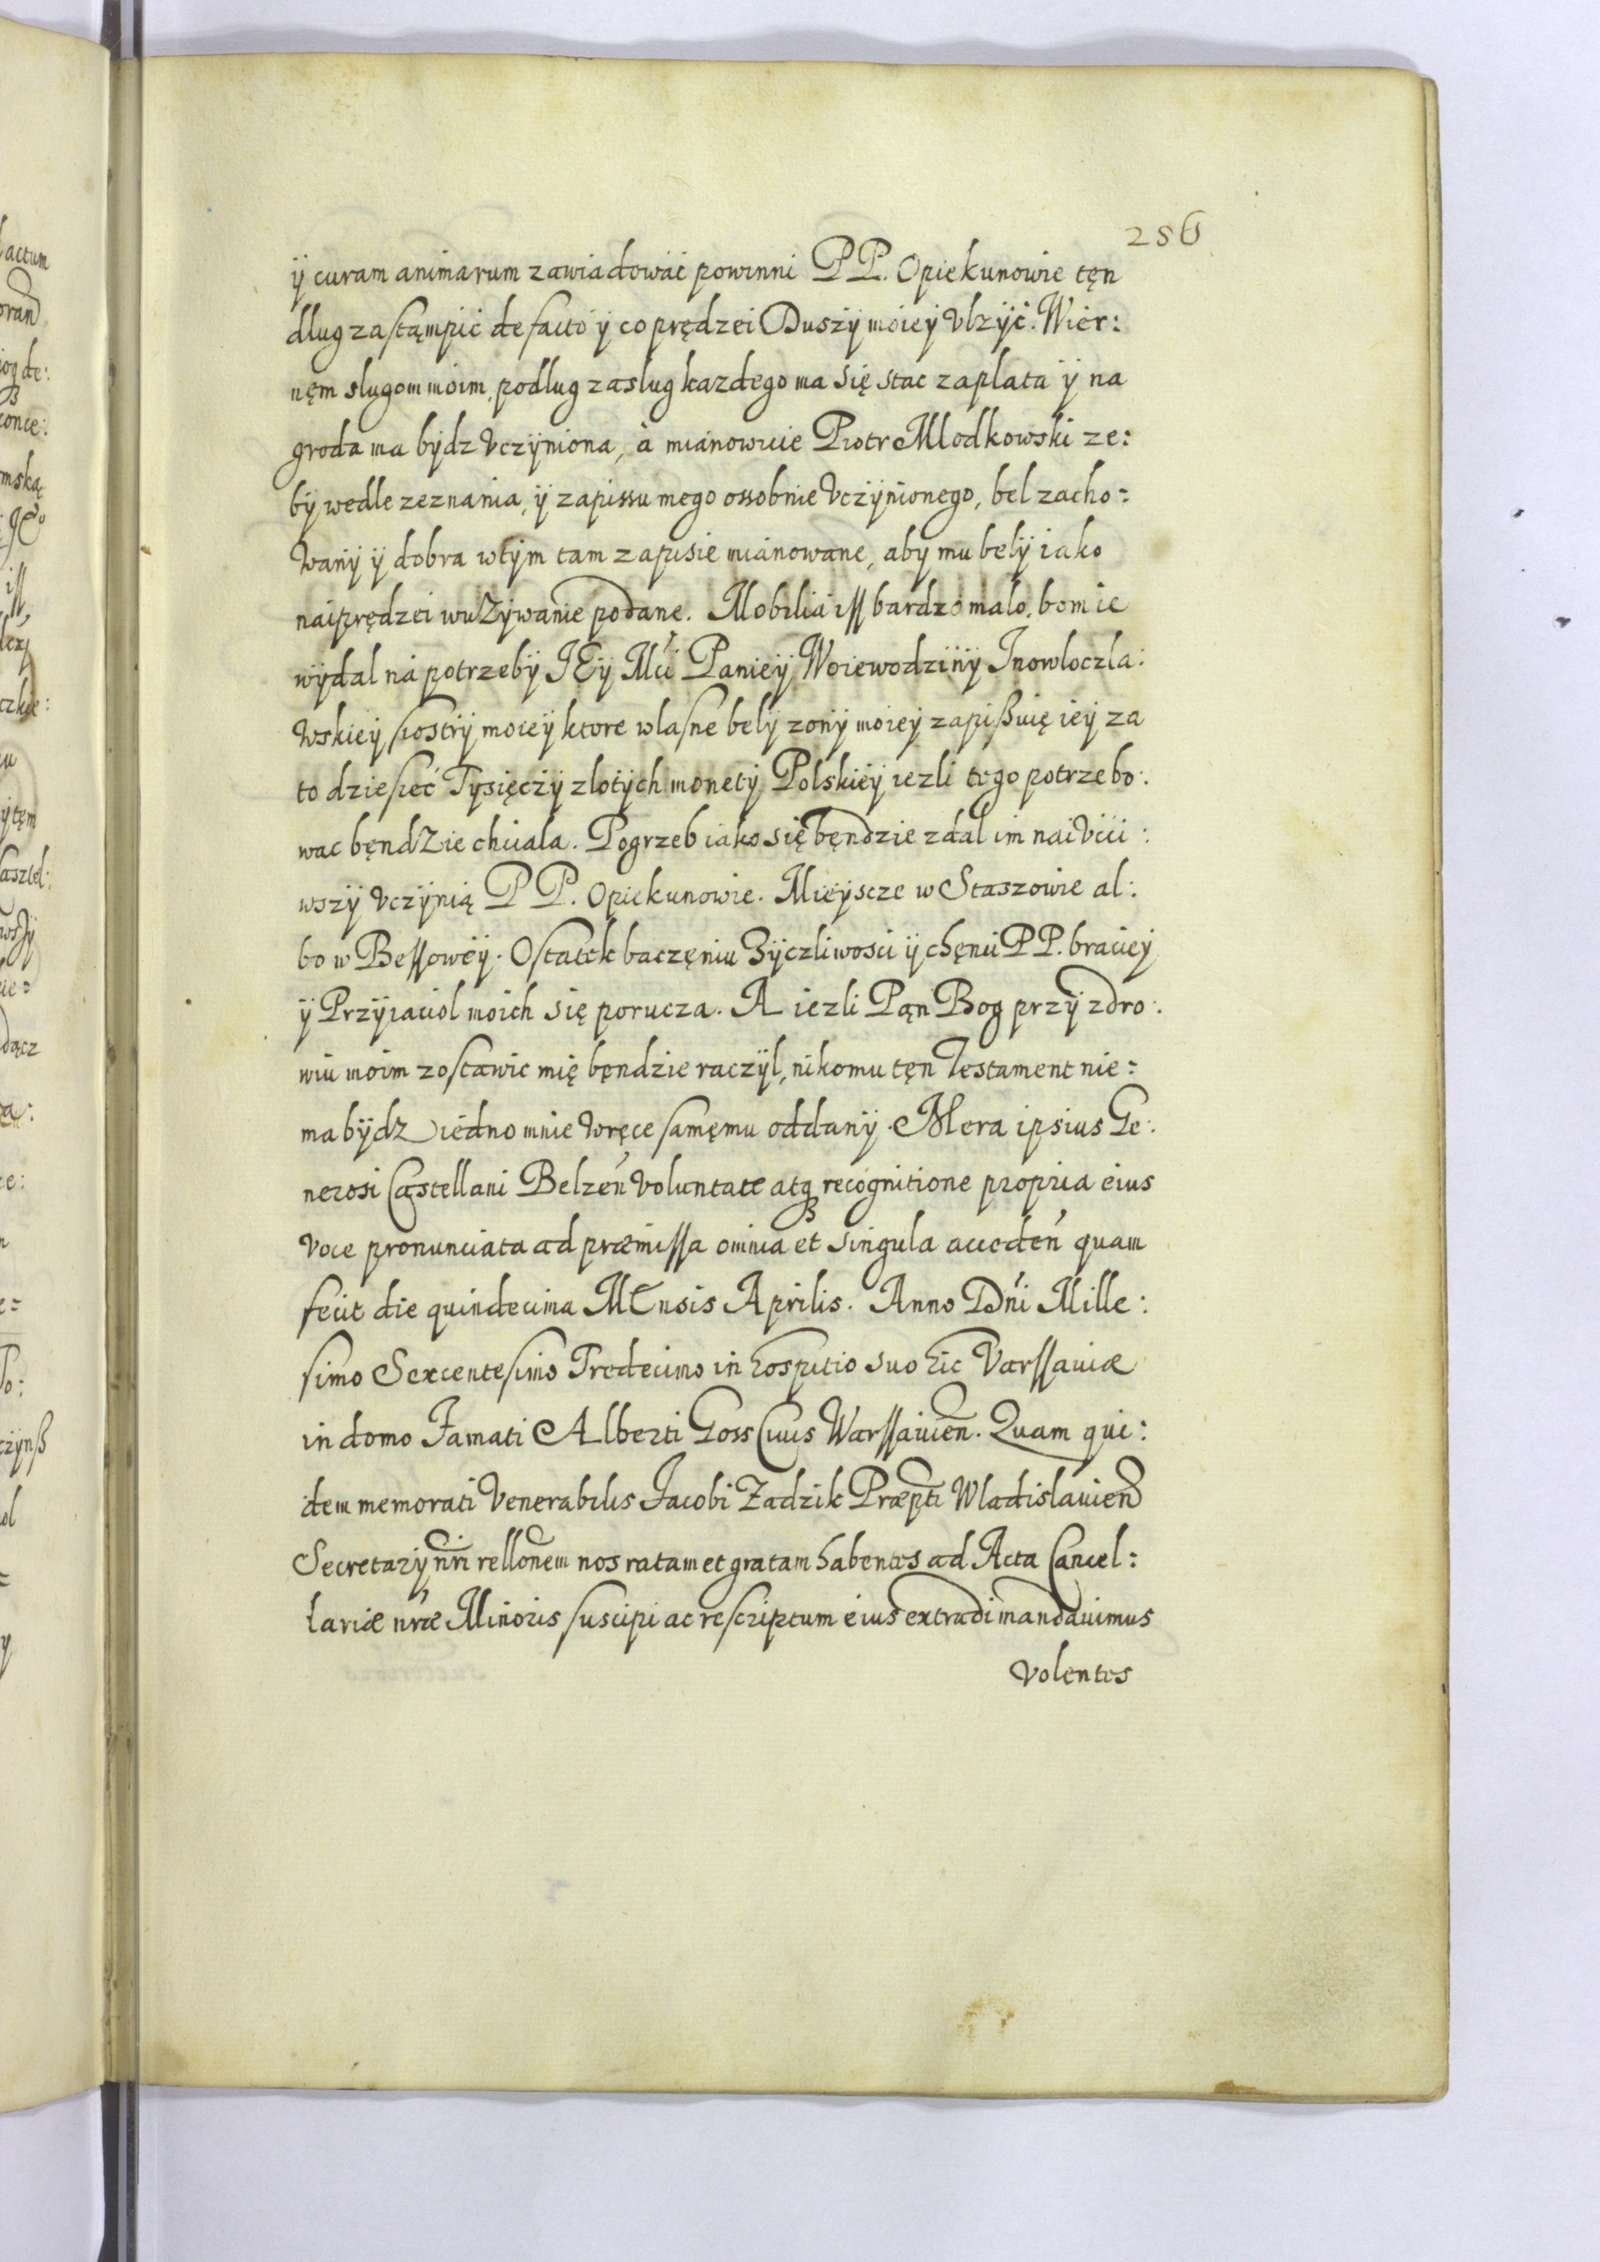 256
ÿ curam animarum zawiadowáć powinni PP. Opiekunowie tęn
dlug zastąmpić de facto ÿ co prędzei Duszÿ moieÿ Vlzÿć. Wier:
nęm slugom moim podlug zaslug kazdego ma się stac zaplata ÿ na
groda ma bÿdz Vczÿniona, à miánowicie Piotr Mlodkowski ze:
bÿ wedle zeznania, ÿ zapissu mego ossobnie Vczÿnionego, bel zacho=
wanÿ ÿ dobra wtÿm tam zapisie miánowane, aby mu belÿ iako
naiprędzei wuZÿwanie podane. Mobilia iss bardzo malo, bom ie
wÿdal ná potrzebÿ JEÿ Mći Panieÿ Woiewodzinÿ Inowloczla:
wskieÿ siostrÿ moieÿ ktore wlasne belÿ zonÿ moieÿ zapißuię ieÿ za
to dziesięć Tysięczÿ zlotÿch monetÿ Polskiéÿ iezli tego potrzebo:
wac bęndZie chciala. Pogrzeb iako się bęndzie zdal im naiVcći:
wszÿ Vczÿnią PP. Opiekunowie. Mieÿscze w Staszowie al:
bo w Bessowéÿ. Ostatek baczęniu Zÿczliwosci ÿ chęnci PP. bracieÿ
ÿ Przÿiaciol moich się porucza. A iezli Pąn Bog przÿ zdro:
wiu moim zostawic mię bęndzie raczÿl, nikomu tęn Testament nie=
ma bÿdz iedno mnie Wręce samęmu oddanÿ. Mera ipsius Ge:
nerosi Castellani Belzeń Voluntate atq recognitione propria eius
Voce pronunciata ad præmissa omnia et singula acceden quam
fecit die quindecima MEnsis Aprilis. Anno Dńi Mille:
simo Sexcentesimo Tredecimo in hospitio suo hic Varssauiæ
in domo Famati Alberti Goss Ciuis Warssauien. Quam qui:
dem memorati Venerabilis Jacobi Zadzik Præpti Wladislauien
Secretarÿ nri rellonem nos ratam et gratam habentes ad Acta Cancel:
lariæ nræ Minoris suscipi ac rescriptum eius extradi mandauimus
Volentes